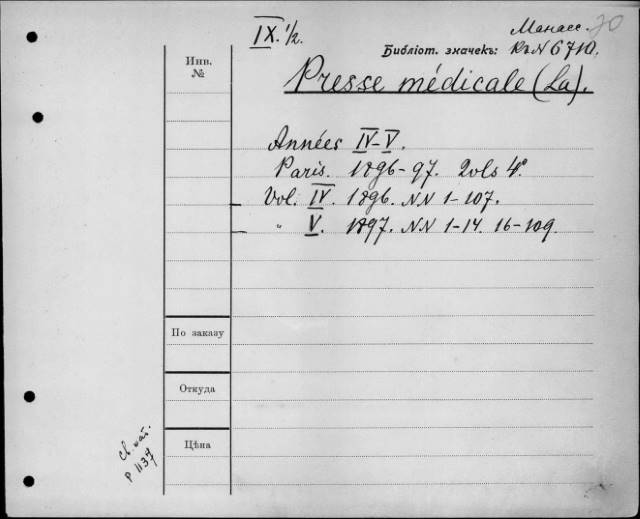 IX. 1/2.
Манас. 20
Библіот. значекъ: К. № 6710.
Инв. №
Presse médicale (La).
Années IV-V.
Paris. 1896-97. 2 vols 4º.
Vol. IV. 1896. NN 1-107.
" V. 1897. NN 1-14. 16-109.
По заказу
Откуда
Цѣна
св. кат.
P 1137